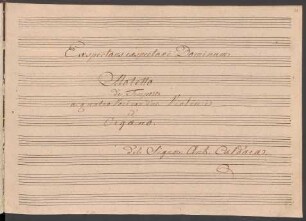 Exspectans exspectavi Dominum
Motetto
a quattro Voci con due Violini
e
Organo
Del Signor Ant. Caldara